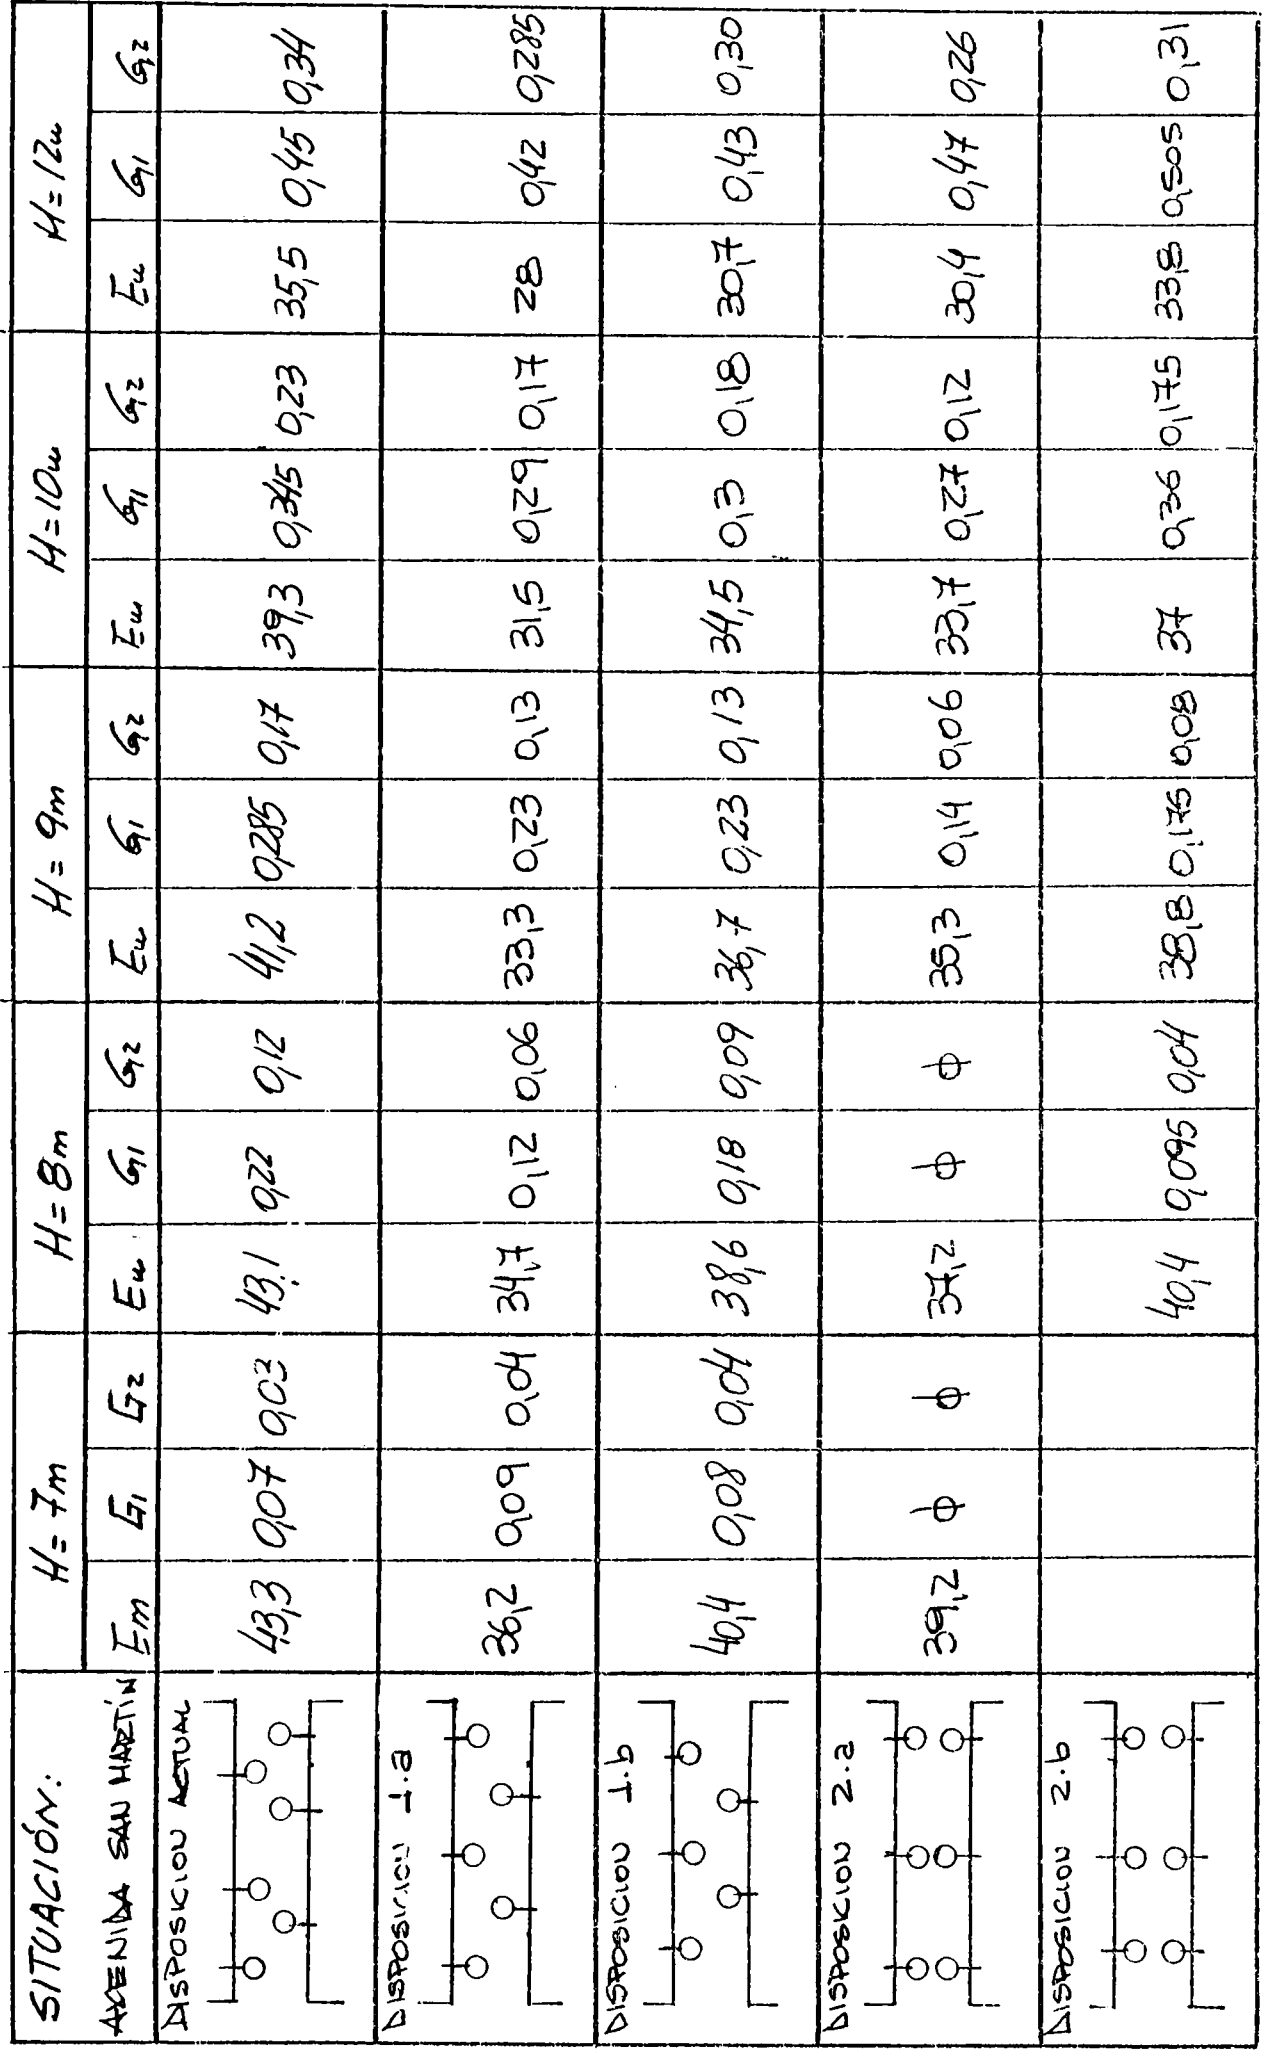 SITUACIÓN: H= 7m H= 8m H= 9m H=10m H=12m
AVENIDA SAN MARTÍN Em G1 G2 Em G1 G2 Em G1 G2 Em G1 G2 Em G1 G2
DISPOSICION ACTUAL 43,3 0,07 0,03 43,1 0,22 0,12 41,2 0,285 0,17 39,3 0,345 0,23 35,5 0,45 0,34
DISPOSICION 1.a 36,2 0,09 0,04 34,7 0,12 0,06 33,3 0,23 0,13 31,5 0,29 0,17 28 0,42 0,285
DISPOSICION 1.b 40,4 0,08 0,04 38,6 0,18 0,09 36,7 0,23 0,13 34,5 0,3 0,18 30,7 0,43 0,30
DISPOSICION 2.a 39,2 ϕ ϕ 37,2 ϕ ϕ 35,3 0,14 0,06 33,7 0,27 0,12 30,4 0,47 0,26
DISPOSICION 2.b 40,4 0,095 0,04 38,8 0,175 0,08 37 0,36 0,175 33,8 0,505 0,31